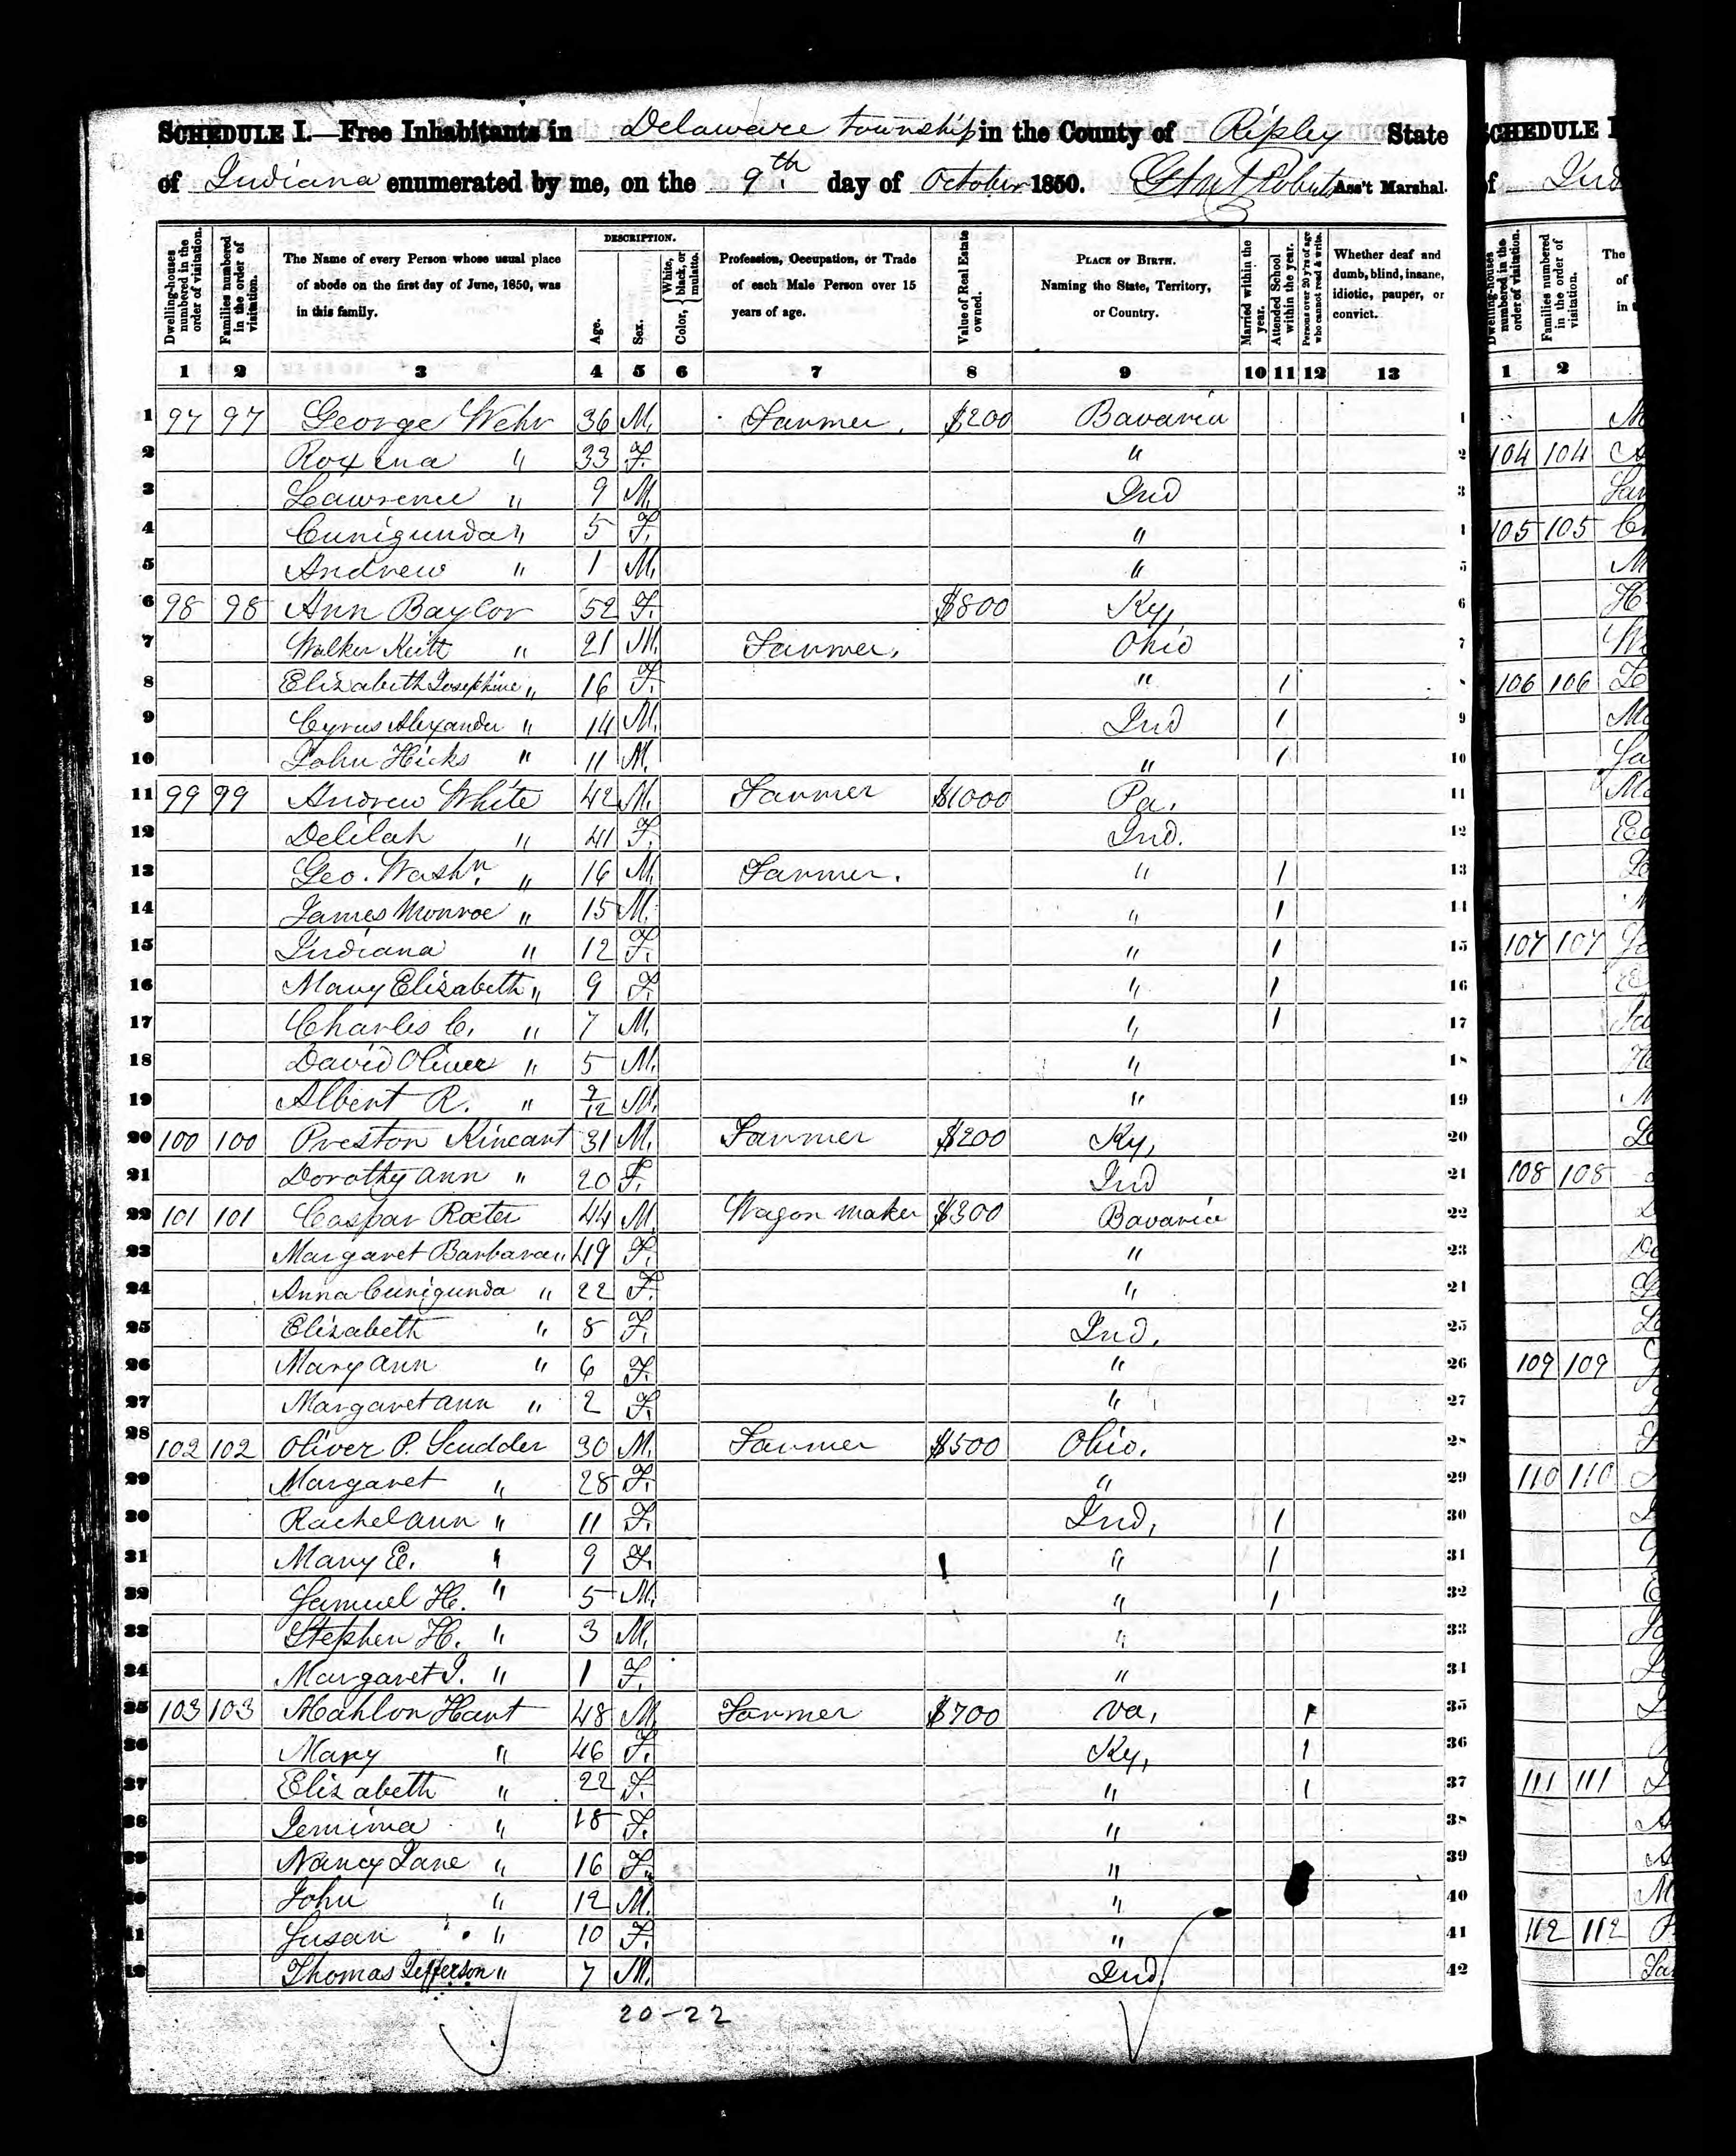 SCHEDULE I.—Free Inhabitants in Delaware township in the County of Ripley State
of Indiana enumerated by me, on the 9th day of October 1850. Ass't Marshal.
Dwelling-houses numbered in the order of visitation.
Families numbered in the order of visitation.
The Name of every Person whose usual place of abode on the first day of June, 1850, was in this family.
DESCRIPTION.
Age.
Sex.
Color, { White, black, or mulatto.
Profession, Occupation, or Trade of each Male Person over 15 years of age.
Value of Real Estate owned.
PLACE OF BIRTH. Naming the State, Territory, or Country.
Married within the year.
Attended School within the year.
Persons over 20 y'rs of age who cannot read & write.
Whether deaf and dumb, blind, insane, idiotic, pauper, or convict.
1 2 3 4 5 6 7 8 9 10 11 12 13
1 97 97 George Wehr 36 M. Farmer. $200 Bavaria 1
2 Roxena " 33 F. " 2
3 Lawrence " 9 M. Ind 3
4 Cunigunda " 5 F. " 4
5 Andrew " 1 M. " 5
6 98 98 Ann Baylor 52 F. $800 Ky, 6
7 Walker Keitt " 21 M. Farmer. Ohio 7
8 Elizabeth Josephine " 16 F. " 1 8
9 Cyrus Alexander " 14 M. Ind 1 9
10 John Hicks " 11 M. " 1 10
11 99 99 Andrew White 42 M. Farmer $1000 Pa. 11
12 Delilah " 41 F. Ind. 12
13 Geo. Washn. " 16 M. Farmer. " 1 13
14 James Monroe " 15 M. " 1 14
15 Indiana " 12 F. " 1 15
16 Mary Elizabeth " 9 F. " 1 16
17 Charles C. " 7 M. " 1 17
18 David Oliver " 5 M. " 18
19 Albert R. " 9/12 M. " 19
20 100 100 Preston Kincant 31 M. Farmer $200 Ky, 20
21 Dorothy Ann " 20 F. Ind 21
22 101 101 Caspar Roeter 44 M. Wagon maker $300 Bavaria 22
23 Margaret Barbara " 49 F. " 23
24 Anna Cunigunda " 22 F. " 24
25 Elizabeth " 8 F. Ind. 25
26 Mary Ann " 6 F. " 26
27 Margaret Ann " 2 F. " 27
28 102 102 Oliver P. Scudder 30 M. Farmer $500 Ohio. 28
29 Margaret " 28 F. " 29
30 Rachel Ann " 11 F. Ind, 1 30
31 Mary E. " 9 F. " 1 31
32 Samuel H. " 5 M. " 1 32
33 Stephen H. " 3 M. " 33
34 Margaret J. " 1 F. " 34
35 103 103 Mahlon Hart 48 M. Farmer $700 Va, 1 35
36 Mary " 46 F. Ky, 1 36
37 Elizabeth " 22 F. " 1 37
38 Jemima " 18 F. " 38
39 Nancy Jane " 16 F. " 39
40 John " 12 M. " 40
41 Susan " 10 F. " 41
42 Thomas Jefferson " 7 M. Ind. 42
20-22
SCHEDULE I
of Ind
Dwelling-houses numbered in the order of visitation.
Families numbered in the order of visitation.
The
of
in
1 2
104 104
105 105
106 106
107 107
108 108
109 109
110 110
111 111
112 112